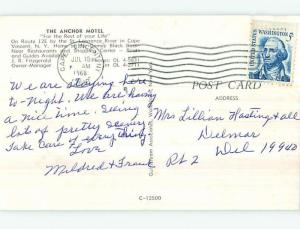 THE ANCHOR MOTEL
"For the Rest of your Life"
On Route 12E by the St. Lawrence River in Cape
Vincent, N. Y. Home of the Gamey Black Bass
Near Restaurants
and Guides Available
J. R. Fitzgerald
Owner-Manager
CAPE
JUL
AM
1968
UNITED STATES
WASHINGTON
5¢
POST CARD
ADDRESS
We are staying here
to-night. We are having
a nice time. Seeing
lots of pretty scenery
Take care of everything
Love
Mildred + Frank
Mrs Lillian Hastings + all
Delmar
Rt 2 Del 19940
C-12500